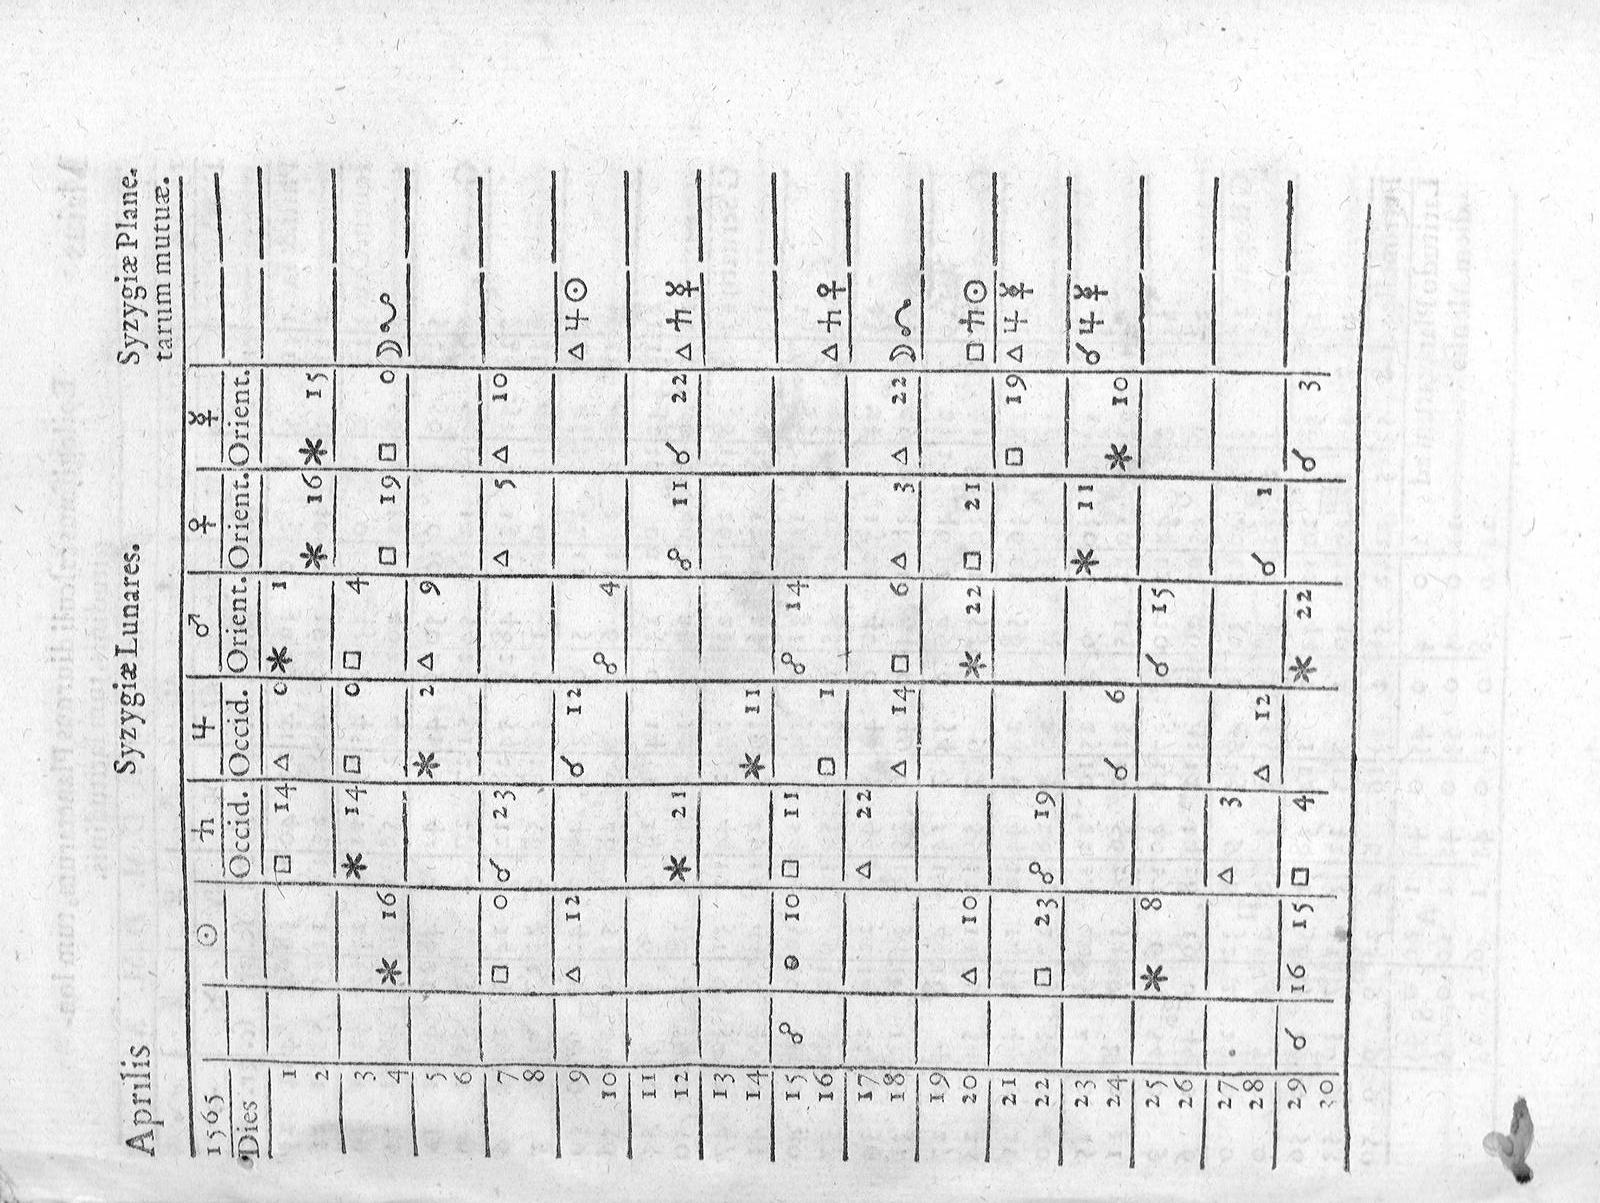 Aprilis Syzygiæ Lunares. Syzygiæ Plane.
tarum mutuæ.
1565 ☉ ♄ ♃ ♂ ♀ ☿
Dies Occid. Occid. Orient. Orient. Orient.
1 □ 14 △ 0 ✶ 1
2 ✶ 16 ✶ 15
3 ✶ 14 □ 0 □ 4
4 ✶ 16 □ 19 □ 0 ☽
5 ✶ 2 △ 9
6
7 □ 0 ☌ 23 △ 5 △ 10
8
9 △ 12 ☌ 12 △ ♃ ☉
10 ☍ 4
11
12 ✶ 21 ☍ 11 ☌ 22 △ ♄ ☿
13
14 ✶ 11
15 ☍ 10 □ 11 ☍ 14
16 □ 1 △ ♄ ♀
17 △ 22
18 △ 14 □ 6 △ 3 △ 22 ☽
19
20 △ 10 ✶ 22 □ 21 □ ♄ ☉
21 □ 19 △ ♃ ☿
22 □ 23 ☍ 19
23 ✶ 11 ☌ ♃ ☿
24 ☌ 6 ✶ 10
25 ✶ 8 ☌ 15
26
27 △ 3
28 △ 12 ☌ 1
29 ☌ 16 15 □ 4 ✶ 22 ☌ 3
30